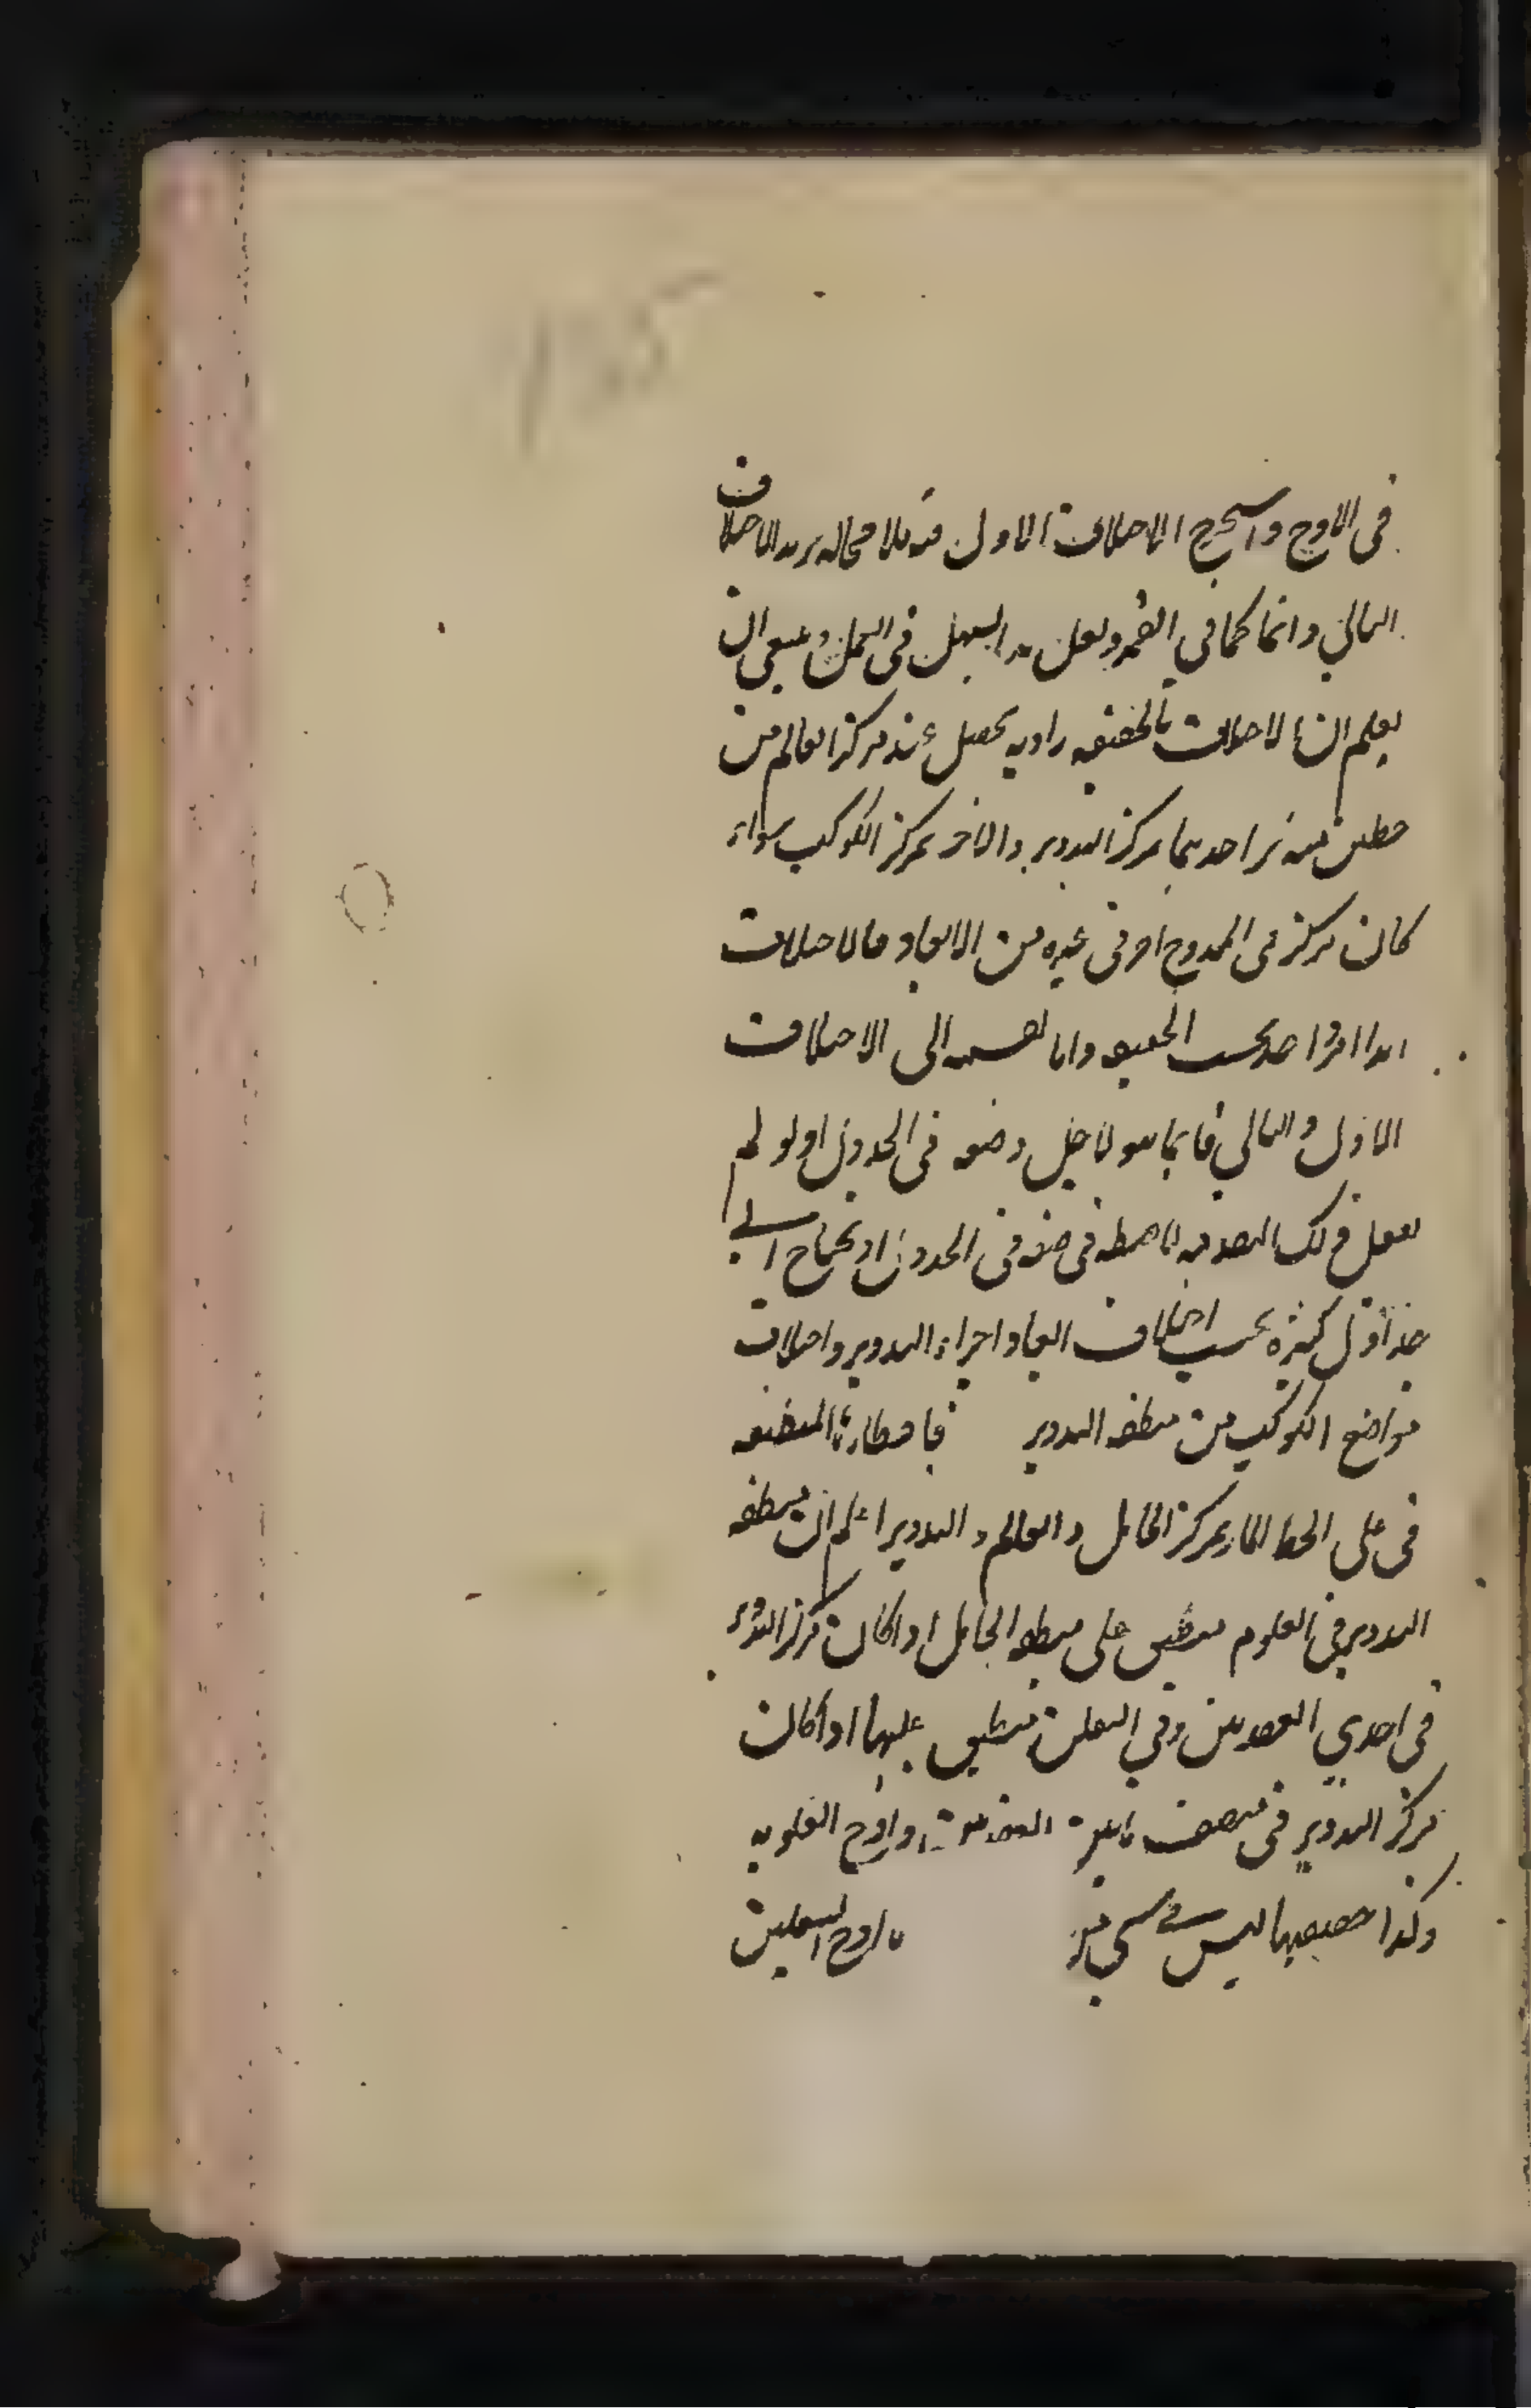 في الاوج واستخرج الاختلاف الاول منه فلا محاله يزيد الاختلاف
الثاني دائما كما في القمر ولعل هذا اسهل في العمل وينبغي ان
يعلم ان الاختلاف بالحقيقه زاويه تحصل عند مركز العالم من
خطين منه يمر احديهما بمركز التدوير والاخر بمركز الكوكب سواء
كان مركزه في الاوج او في غيره من الابعاد فالاختلاف
ابدا امر واحد بحسب الحقيقه واما تقسيمه الى الاختلاف
الاول والثاني فانما هو لاجل وضعه في الجدول اذ لو لم
يفعل ذلك التصرف فيه في وضعه في الجدول او يحتاج الى
جداول كثيره بحسب اختلاف ابعاد اجزاء التدوير واختلاف
مواضع الكوكب من منطقه التدوير المنطبقه
في على الخط المار بمركز الحامل والعالم والتدوير اعلم ان منطقه
التدوير في العلويه منطبق على منطقه الحامل اذا كان مركز التدوير
في احدي العقدتين وفي السفلين منطبق عليها اذا كان
مركز التدوير في منتصف ما بين العقدتين واوج العلويه
وكذا حضيضها ليس في اوج السفلين